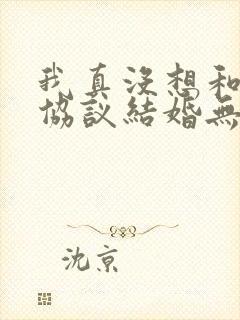 我真沒想和
協議結婚無
沈京